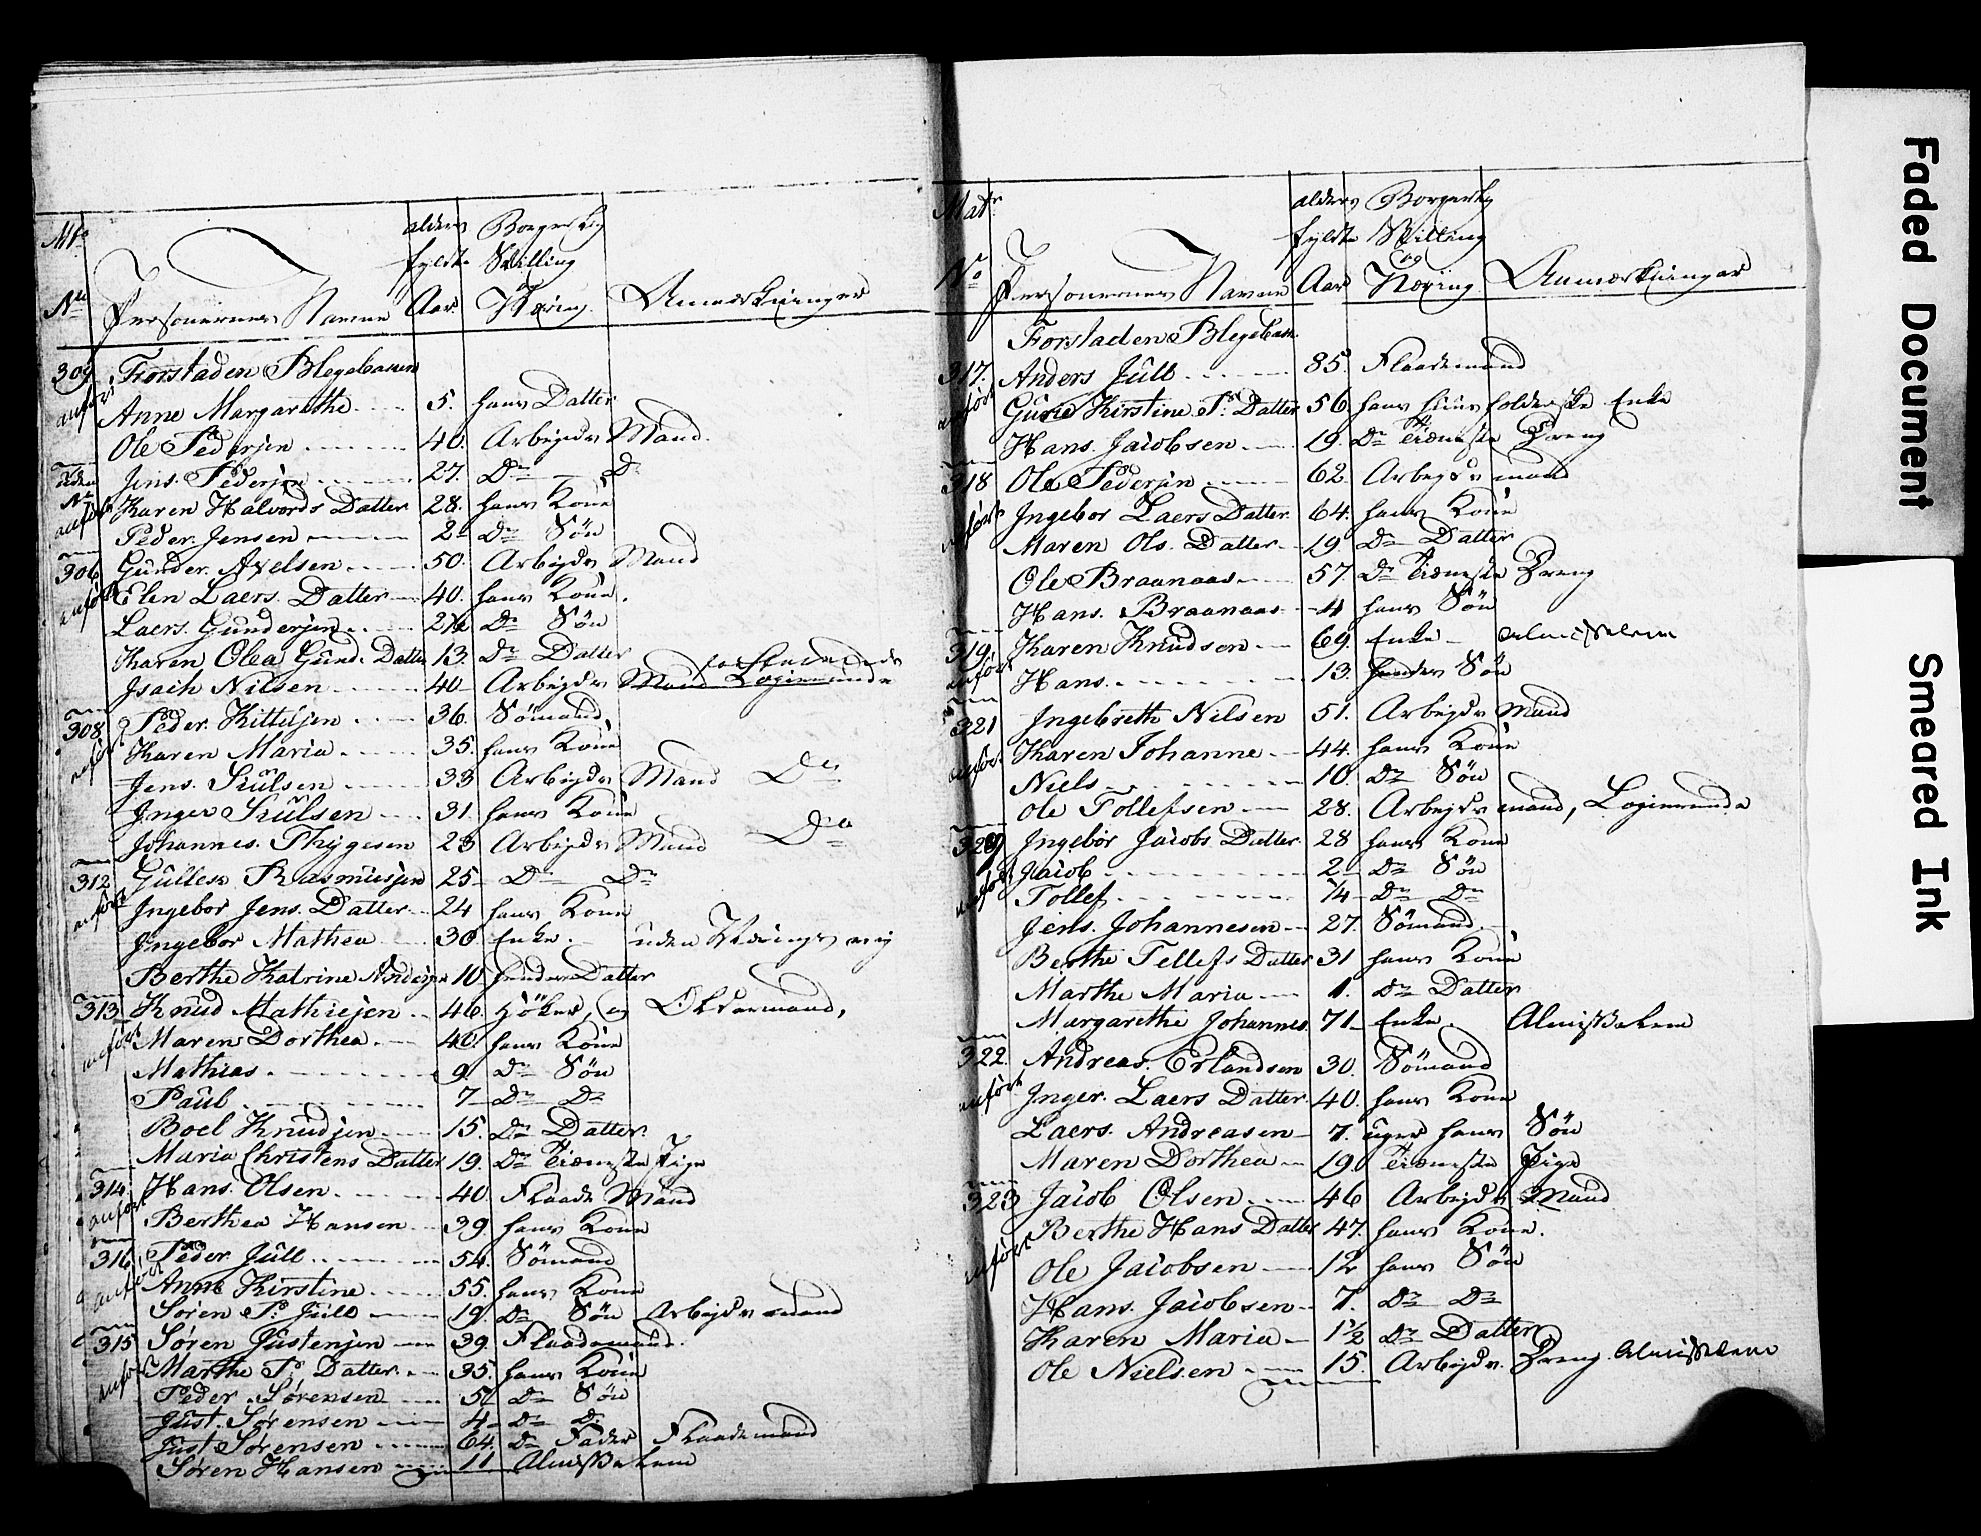 Mtr alders Borgerlig
fyldte Stilling
og
No Personernes Navne Aar Næring Anmærkninger
309 Forstaden Blegebacken
anført Anne Margarethe 5. hans Datter
Ole Pedersen 40. Arbejds Mand
uden Jens Pedersen 27. Do Do
No Karen Halvords Datter 28. hans Kone
anført Peder Jensen 2 Do Søn
306 Gunder Axelsen 50. Arbejds Mand
anført Elen Laers Datter 40. hans Kone.
Laers Gundersen Do Søn
Karen Olea Gund. Datter 13. Do Datter
Isach Nilsen 40 Arbejds Mand Logierende
308 Peder Kittelsen 36. Sömand,
anført Karen Maria 35. hans Kone
Jens Siulsen 33 Arbejds Mand Do
Inger Siulsen 31. hans Kone
Johannes Thygesen 23 Arbejds Mand Do
312 Gulles Rasmussen 25 Do Do
anført Ingebor Jens Datter 24 hans Kone
Ingebor Mathea 30 Enke. uden Nærings vej
Berthe Katrine 10. hendes Datter
313 Knud Mathiesen 46. Höker og
anført Maren Dorthea 40. hans Kone
Mathias 9 Do Søn
Paul 7 Do Do
Boel Knudsen 15. Do Datter
Maria Christens Datter 19. Do Tieneste Pige
314 Hans Olsen 40. Flaade Mand
anført Berthea Hansen 39. hans Kone
316 Peder Jull 54. Sömand
anført Anne Kirstine 55. hans Kone
Søren P. Jull 19. Do Søn Arbejds mand
315 Søren Justensen 39. Flaademand.
anført Marthe P. Datter 35. hans Kone
Peder Sørensen 5 Do Søn
Just Sørensen 4 Do Do
Just Sørensen 64. Do Fader Flaademand
Søren Hansen 11 Almisselem
Matr alders Borgerlig
fyldte Stilling
og
No Personernes Navne Aar Næring Anmærkninger
Forstaden Blegebacken
317. Anders Jull 85. Flaademand
anført Gune Kirstine P. Datter 56. hans huusholderske Enke
Hans Jacobsen 19. Do Tieneste Dreng
318 Ole Pedersen 62. Arbejds mand
anført Ingebor Laers Datter 64. hans Kone
Maren Ols. Datter 19 Do Datter
Ole Braanaas 57. Do Tieneste Dreng
Hans Braanaas 4 hans Søn
319. Karen Knudsen 69. Enke Almisselem
anført Hans 13. hendes Søn
321 Ingebreth Nilsen 51. Arbejds Mand
anført Karen Johanne 44. hans Kone
Niels 10. Do Søn
Ole Tollefsen 28. Arbejds mand, Logierende
Ingebor Jacobs Datter 28 hans Kone
anført Jacob 2 Do Søn
Tollef 1/4 Do Do
Jens Johannesen 27. Sömand
Berthe Tellefs Datter 31 hans Kone
Marthe Maria 1. Do Datter
Margarethe Johannes 71 Enke. Almisselem
322. Andreas Erlandsen 30. Sömand
anført Inger Laers Datter 40. hans Kone
Laers Andreasen 7. uger hans Søn
Maren Dorthea 19. Tieneste Pige
323 Jacob Olsen 46 Arbejds Mand
Berthe Hans Datter 47. hans Kone.
anført Ole Jacobsen 12 hans Søn
Hans Jacobsen 7. Do Do
Karen Maria 1 1/2 Do Datter
Ole Nielsen 15. Arbejds Dreng Almisselem
Faded Document
Smeared Ink